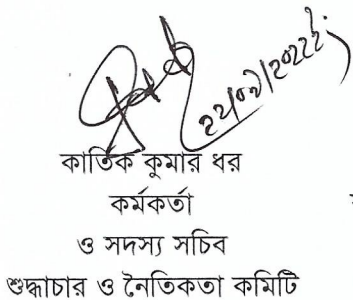 কার্তিক কুমার ধর
কর্মকর্তা
ও সদস্য সচিব
শুদ্ধাচার ও নৈতিকতা কমিটি